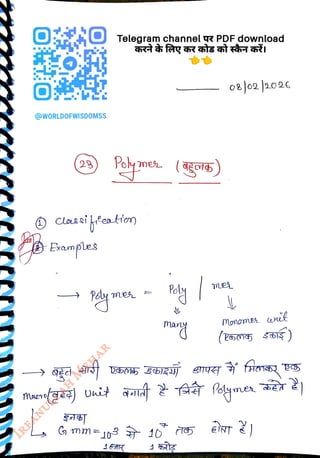 Telegram channel पर PDF download
करने के लिए कर कोड को स्कैन करें।
👉👉
@WORLDOFWISDOMSS
08/02/2026
(23) Polymer (बहुलक)
① Classification
② Examples
→ Polymer = Poly / mer
⇓ ⇓
many monomer unit
(एकलक इकाई)
→ बहुत सारी एकलक इकाइयाँ आपस में मिलकर एक
macro (वृहद) unit बनाती है जिसे Polymer कहते है।
इनका
↳ G mm = 10³ से 10⁷ तक होता है।
1 हजार 1 करोड़